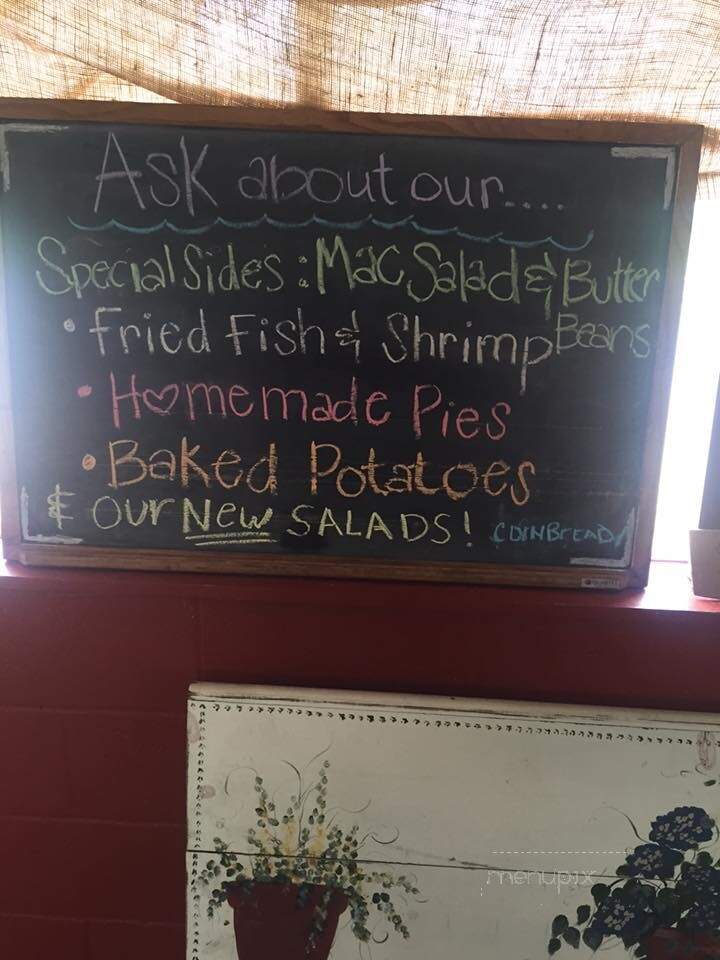 Ask about our....
Special Sides: Mac Salad & Butter Beans
• Fried Fish & Shrimp
• Homemade Pies
• Baked Potatoes
& Our New SALADS!
CORNBREAD
menupix